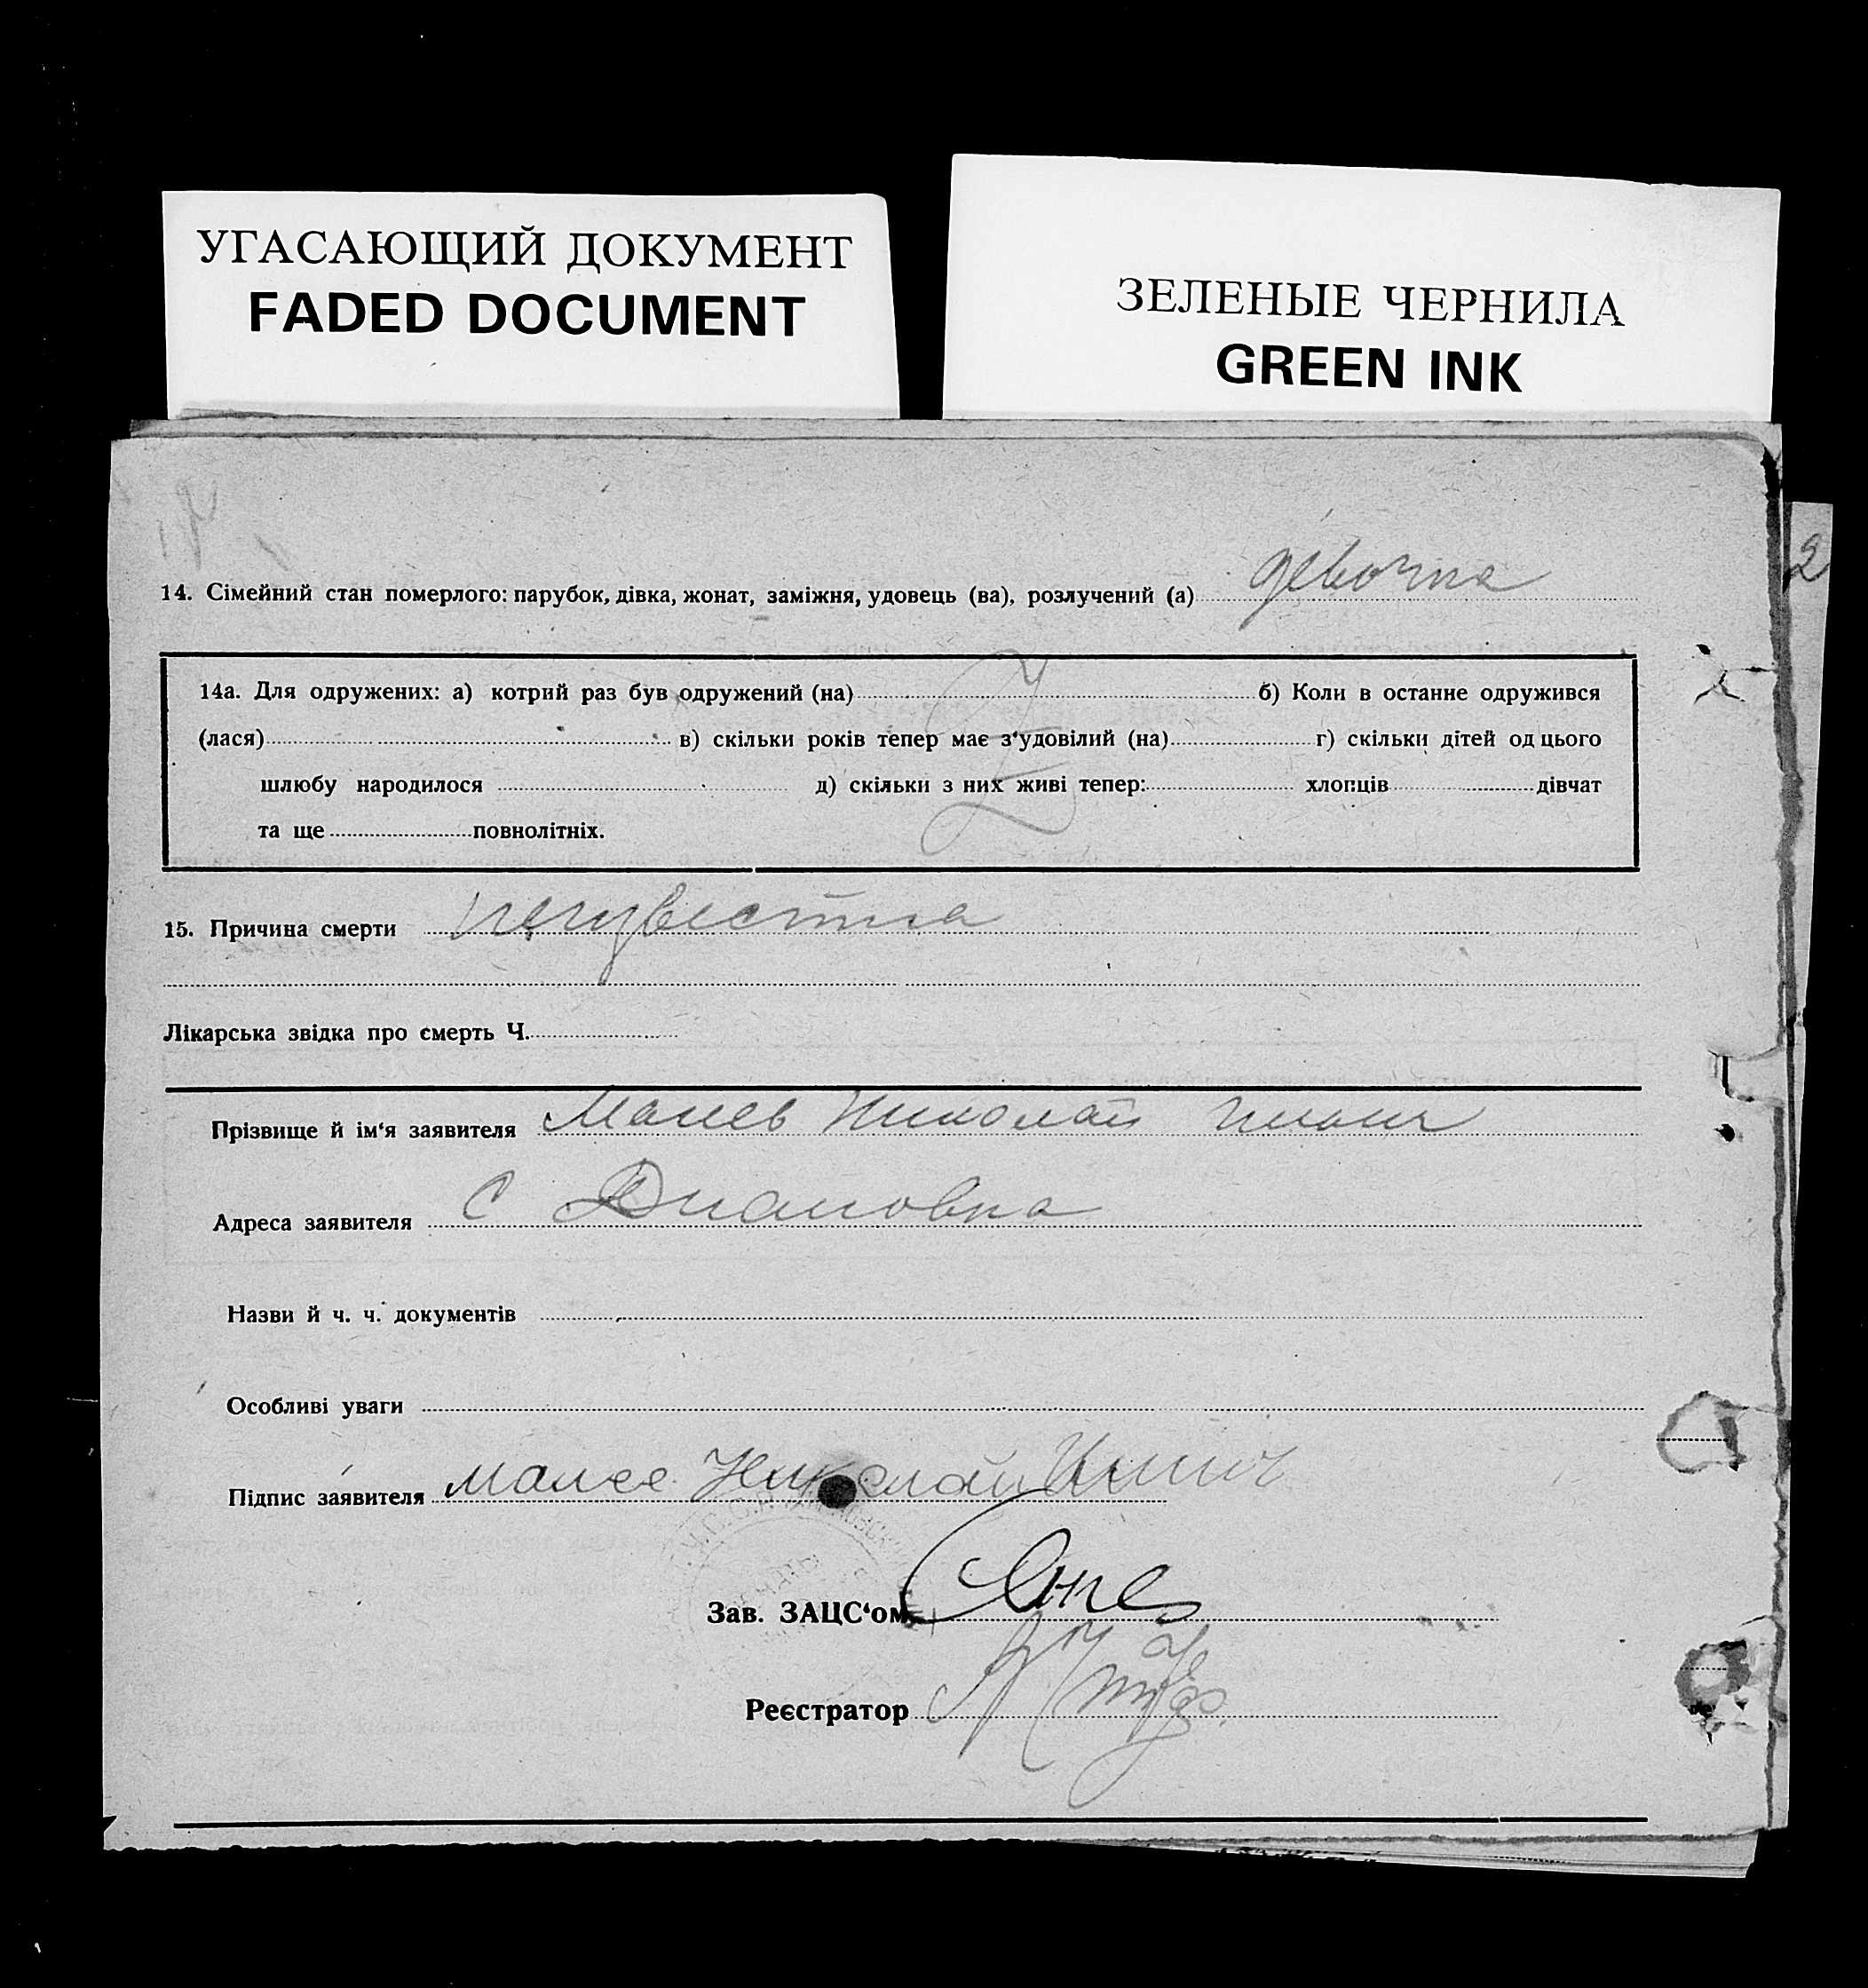 УГАСАЮЩИЙ ДОКУМЕНТ
FADED DOCUMENT
ЗЕЛЕНЫЕ ЧЕРНИЛА
GREEN INK
2
14. Сімейний стан померлого: парубок, дівка, жонат, заміжня, удовець (ва), розлучений (а) девочка
14а. Для одружених: а) котрий раз був одружений (на) б) Коли в останне одружився
(лася) в) скільки років тепер має з'удовілий (на) г) скільки дітей од цього
шлюбу народилося д) скільки з них живі тепер: хлопців дівчат
та ще повнолітніх.
15. Причина смерти неизвестна
Лікарська звідка про смерть Ч.
Прізвище й ім'я заявителя Малев Николай
Адреса заявителя с Диановка
Назви й ч. ч. документів
Особливі уваги
Підпис заявителя Малев Николай
Зав. ЗАЦС'ом
Реєстратор